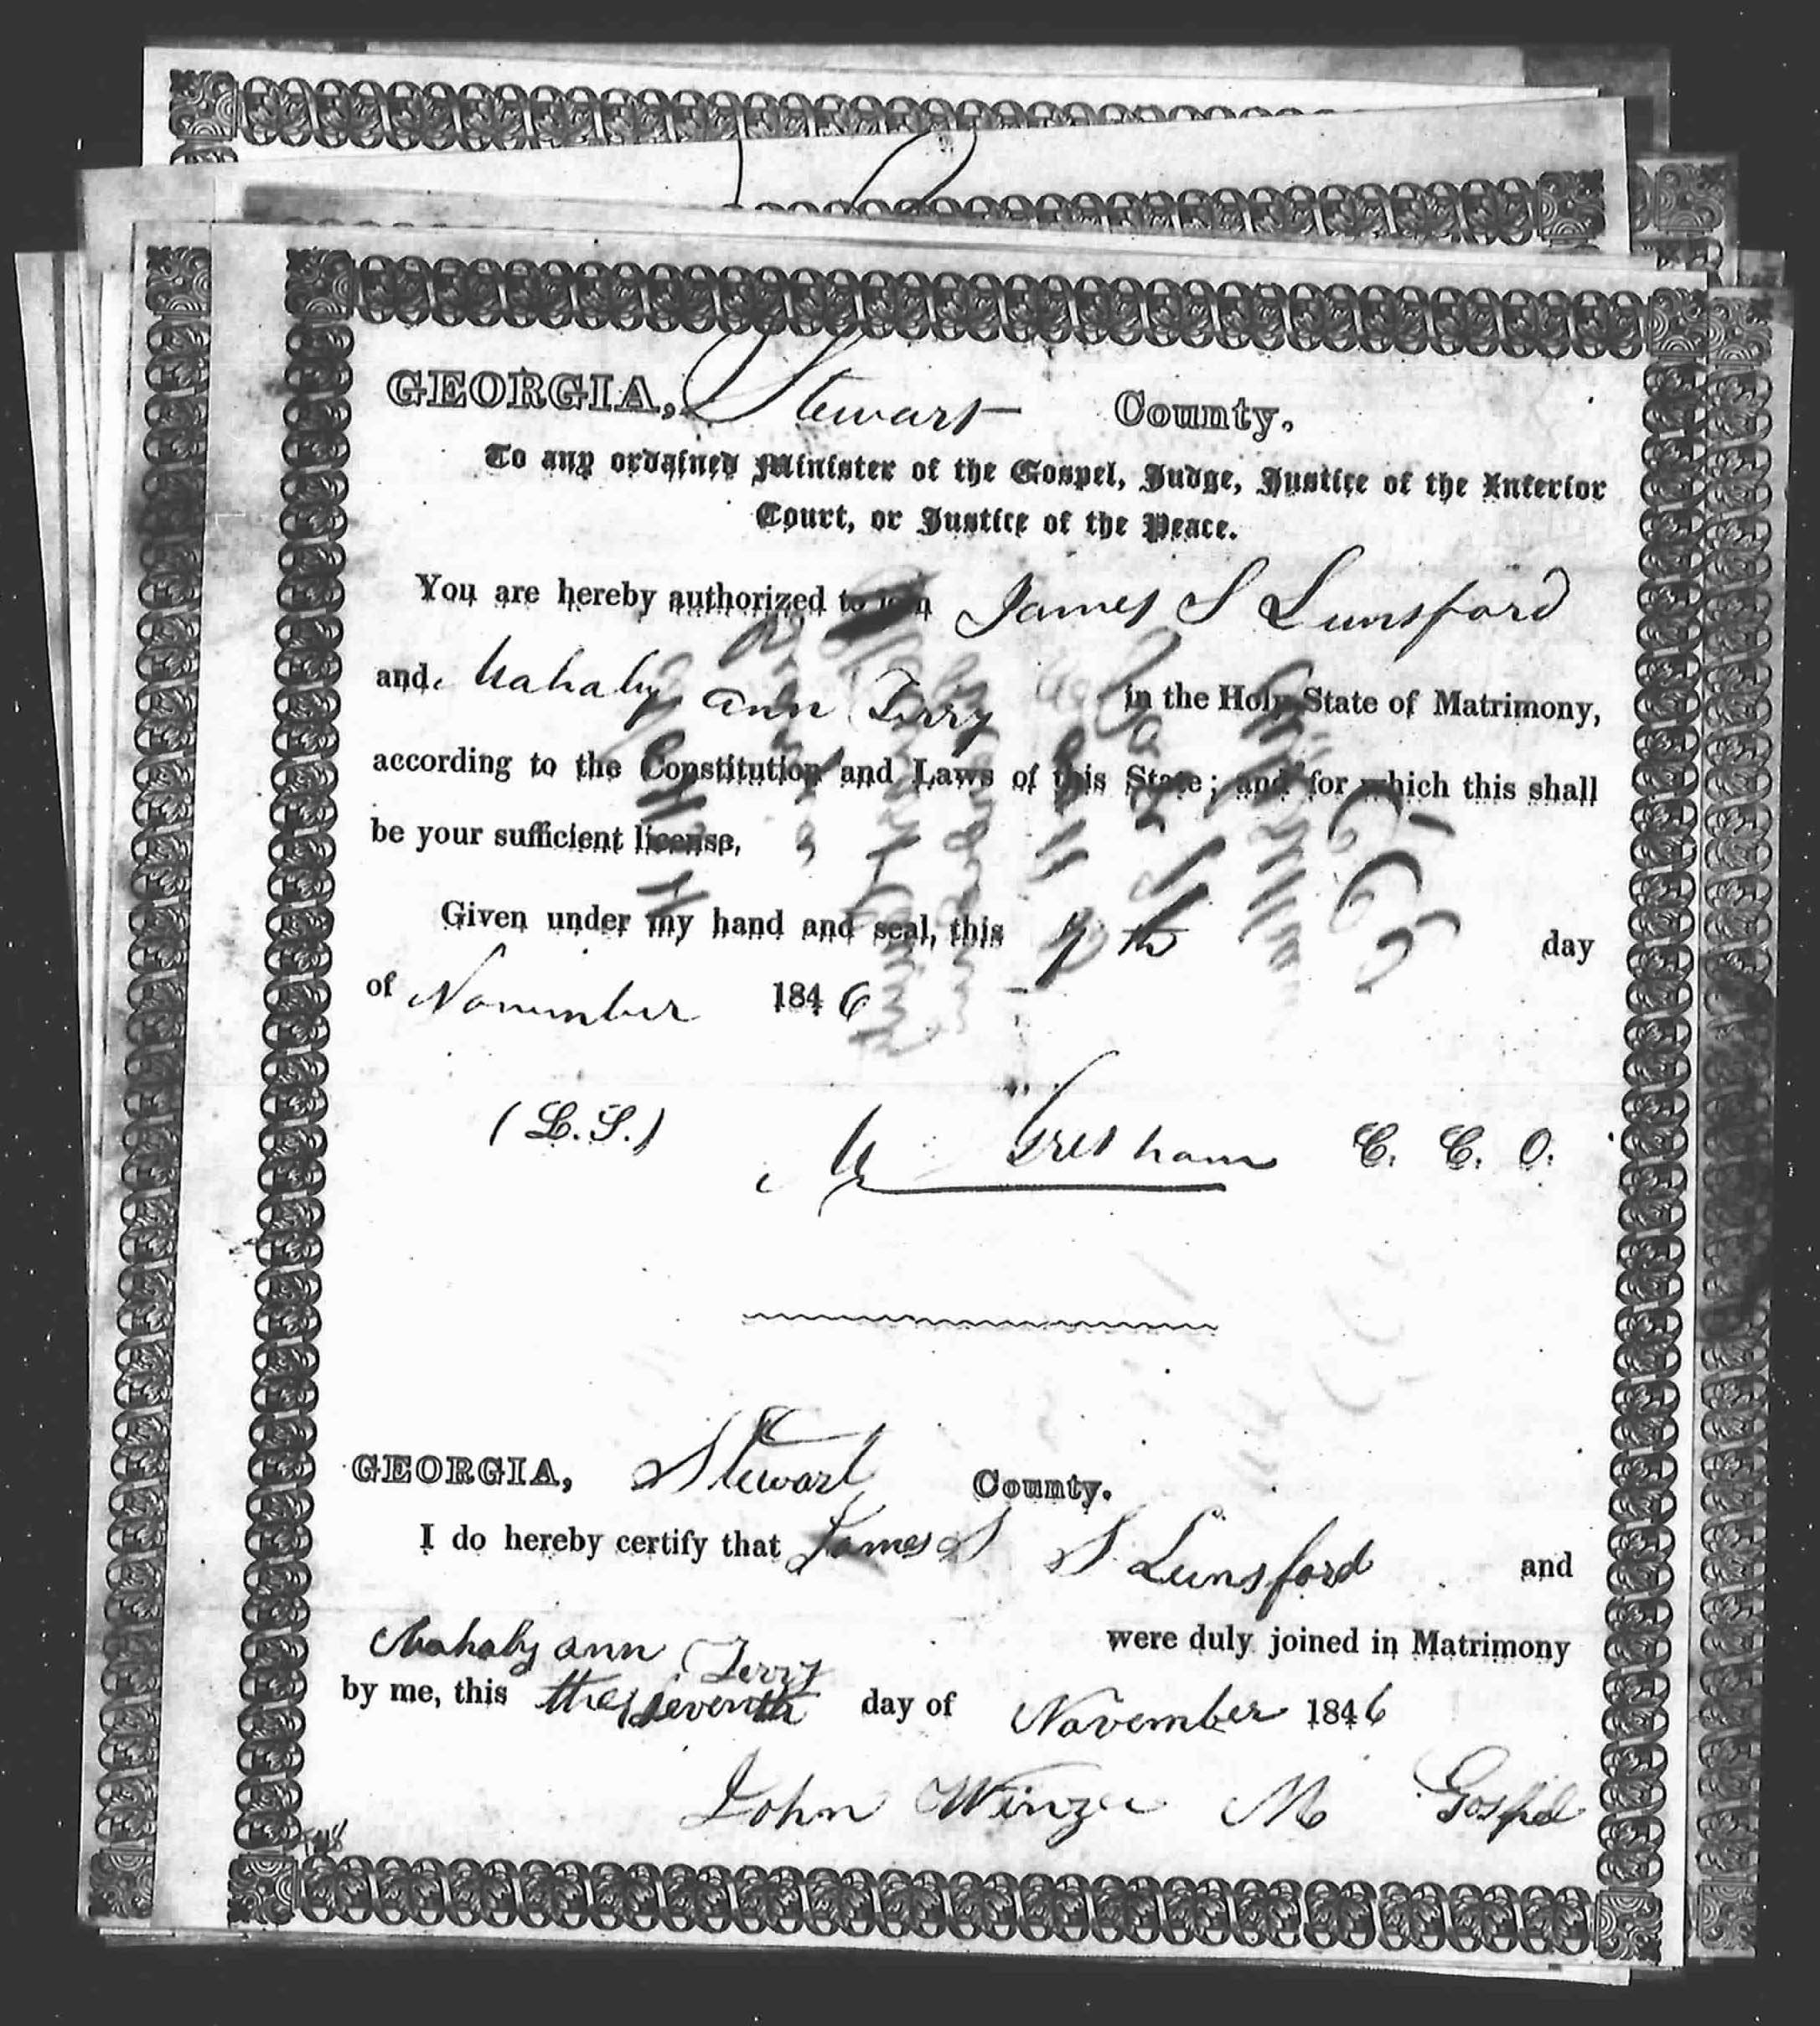 GEORGIA, Stewart County.
To any ordained Minister of the Gospel, Judge, Justice of the Inferior
Court, or Justice of the Peace.
You are hereby authorized to join James S Lunsford
and Mahaby ann Terry in the Holy State of Matrimony,
according to the Constitution and Laws of this State; and for which this shall
be your sufficient license,
Given under my hand and seal, this 7th day
of November 1846
(L.S.)
M Gresham C. C. O.
GEORGIA, Stewart County.
I do hereby certify that James S S Lunsford and
Mahaby ann Terry were duly joined in Matrimony
by me, this the seventh day of November 1846
John Winze M Gospel